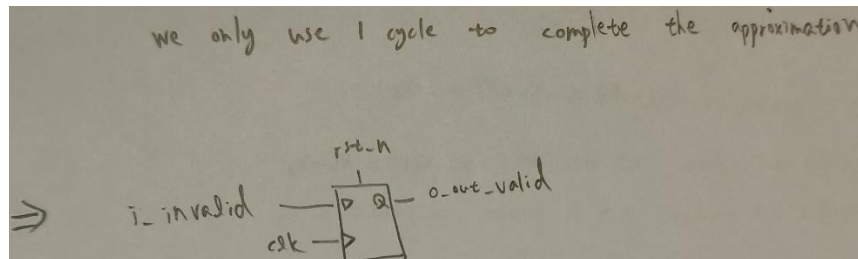 we only use 1 cycle to complete the approximation
rst_n
⇒ i_invalid D Q o_out_valid
clk